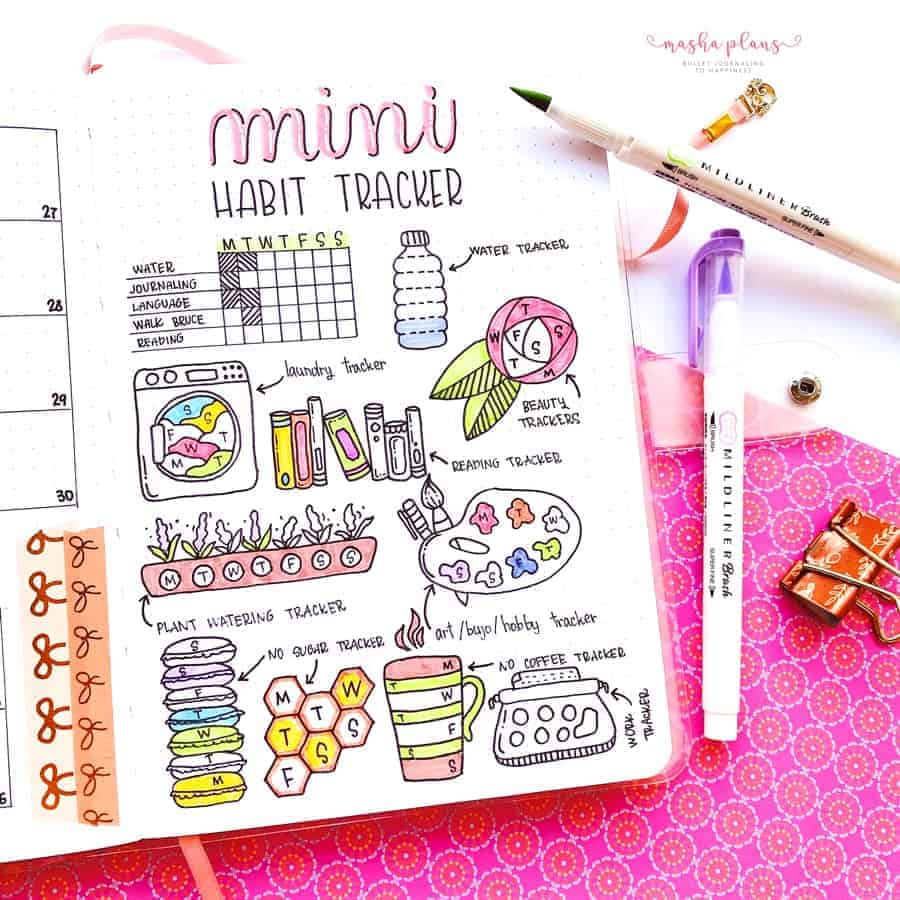 masha plans
BULLET JOURNALING
TO HAPPINESS
mini
HABIT TRACKER
27
28
29
30
M T W T F S S
WATER
JOURNALING
LANGUAGE
WALK BRUCE
READING
WATER TRACKER
W T S F S T M
BEAUTY
TRACKERS
laundry tracker
S S F T W M T
READING TRACKER
M T W T F S S
PLANT WATERING TRACKER
M T W T F S S
art/bujo/hobby tracker
NO SUGAR TRACKER
S
S
F
T
W
T
M
M T W
T T S S
F
NO COFFEE TRACKER
M
T
W
T
F
S
S
WORK
TRACKER
MILDLINER Brush
BRUSH
SUPER FINE
MILDLINER Brush
BRUSH
SUPER FINE